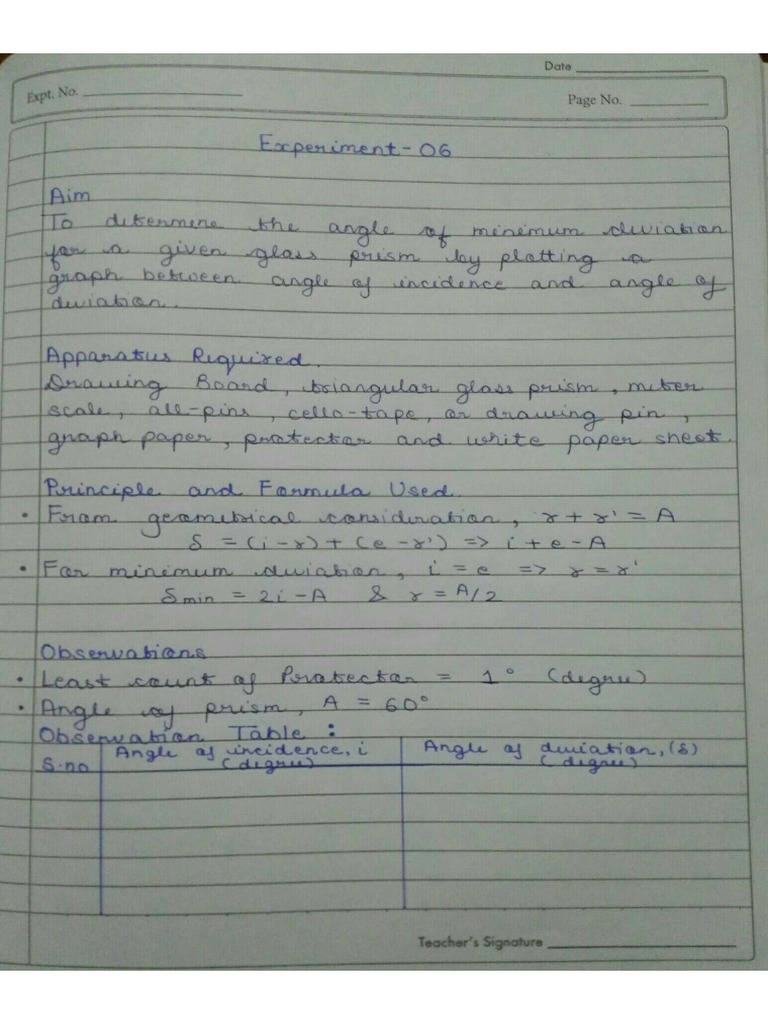 Date
Expt. No.
Page No.
Experiment - 06
Aim
To determine the angle of minimum deviation
for a given glass prism by plotting a
graph between angle of incidence and angle of
deviation.
Apparatus Required.
Drawing Board, triangular glass prism, meter
scale, all-pins, cello-tape, or drawing pin,
graph paper, protector and white paper sheet.
Principle and Formula Used.
• From geometrical consideration, r + r' = A
δ = (i - r) + (e - r') => i + e - A
• For minimum deviation, i = e => r = r'
δmin = 2i - A & r = A/2
Observations
• Least count of Protector = 1° (degree)
• Angle of prism, A = 60°
Observation Table :
S.no Angle of incidence, i (degree) Angle of deviation, (δ) (degree)
Teacher's Signature